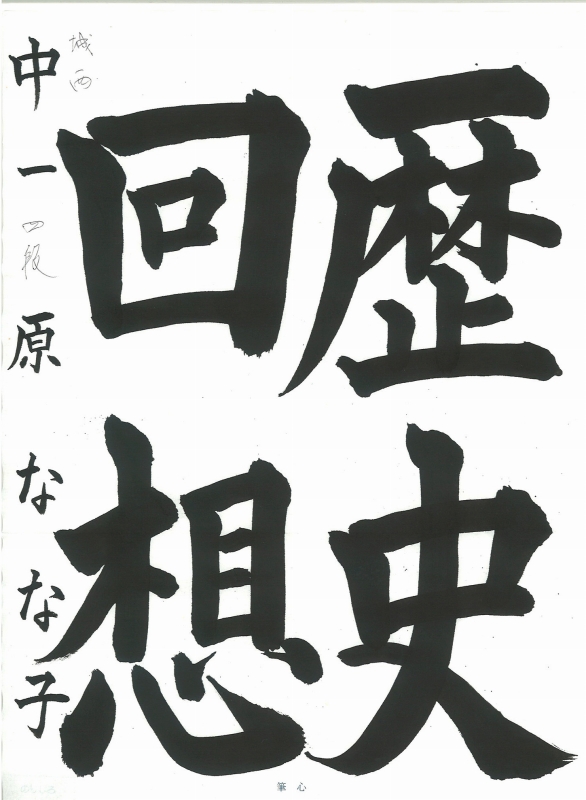 歴史
回想
城西
中一 四段 原 なな子
心筆